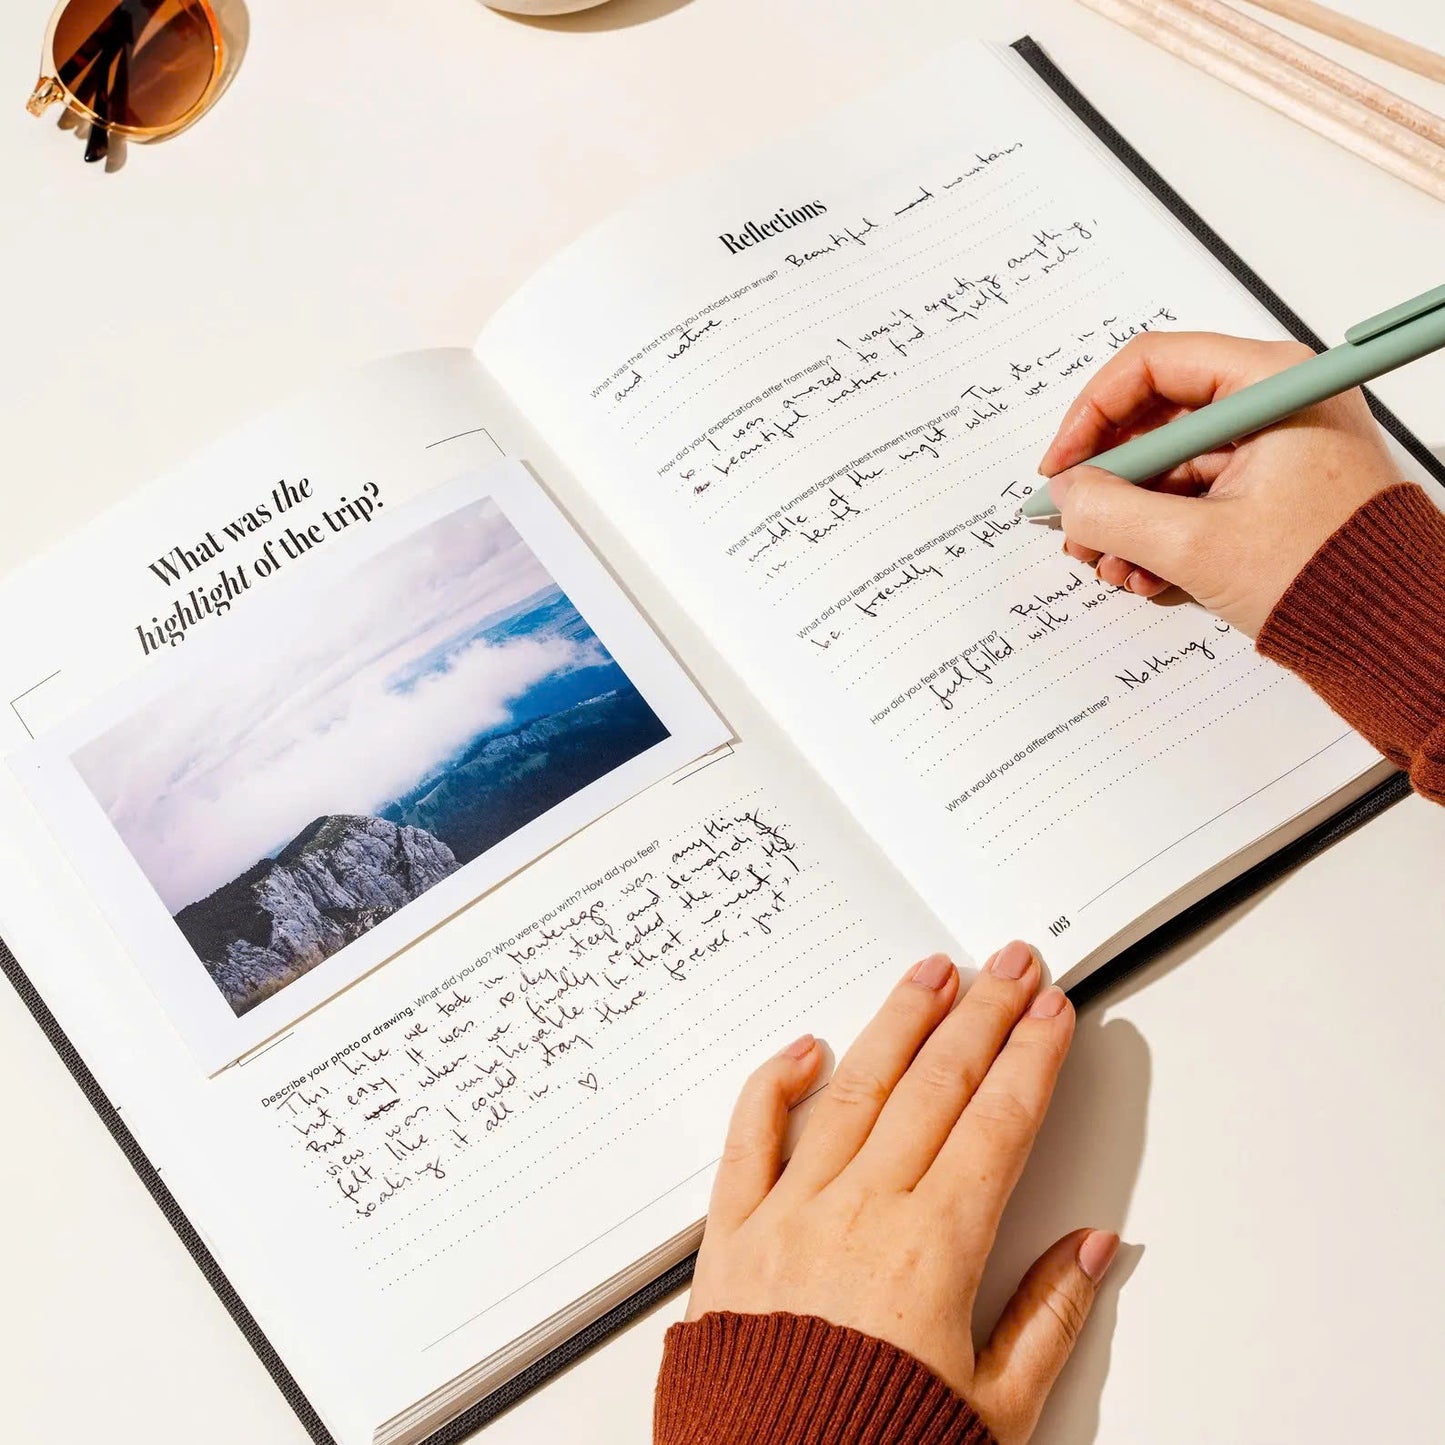 What was the
highlight of the trip?
Describe your photo or drawing. What did you do? Who were you with? How did you feel?
This hike we took in Montenegro was anything
but easy. It was rocky, steep and demanding
But when we finally reached the top, the
view was unbelievable. In that moment, I
felt like I could stay there forever, just
soaking it all in ♡
Reflections
What was the first thing you noticed upon arrival? Beautiful mountains
and nature.
How did your expectations differ from reality? I wasn't expecting anything,
so I was amazed to find myself in such
beautiful nature.
What was the funniest/scariest/best moment from your trip? The storm in a
middle of the night while we were sleeping
in tents
What did you learn about the destination's culture? To
be friendly to fellow
How did you feel after your trip? Relaxed,
fulfilled with
What would you do differently next time? Nothing
103